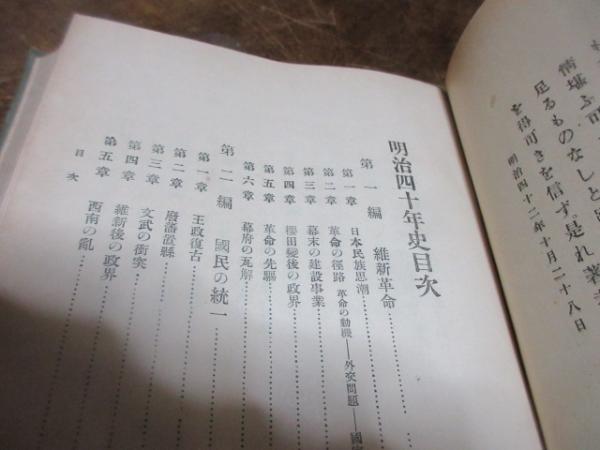 も
情堪ふ可
足るものなしと
を得可きを信ず。是れ著
明治四十二年十月二十八日
明治四十年史目次
第一編 維新革命
第一章 日本民族思潮
第二章 革命の徑路 革命の動機—外交問題—國
第三章 幕末の建設事業
第四章 櫻田變後の政界
第五章 革命の先驅
第六章 幕府の瓦解
第二編 國民の統一
第一章 王政復古
第二章 廢藩置縣
第三章 文武の衝突
第四章 維新後の政界
第五章 西南の亂
目次